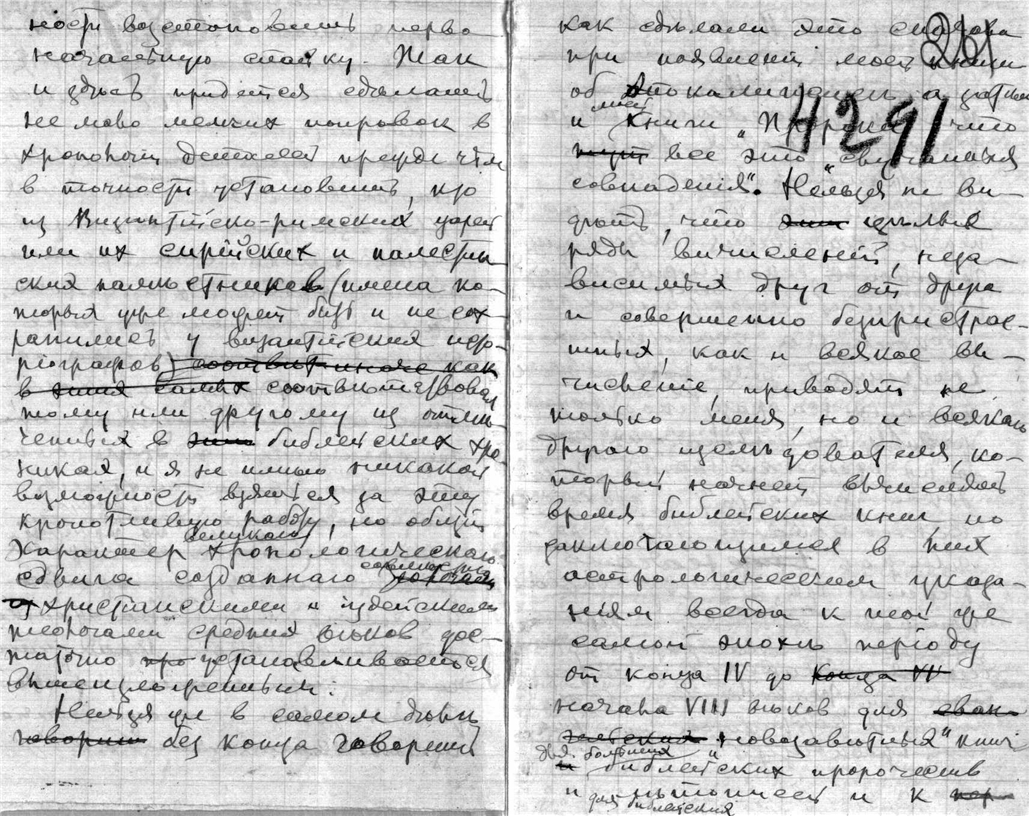 ности возстановить перво
начальную спайку. Так
и здѣсь придется сдѣлать
не мало мелких поправок в
хронологіи деталей прежде чѣм
в точности установить, кто
из Византійско-римских царей
или их сирійских и палестин
ских намѣстников (имена ко-
торых уже может быть и не сох
ранились у византійских исто
ріографов) соотвѣт иначе как
в самых соотвѣтствовал
тому или другому из отмѣ
ченных в библейских хро
никах, и я не имѣю никакой
возможности взяться за эту
кропотливую работу, но общій
великаго
характер хронологическаго
сдвига созданнаго
христіанскими и іудейскими
теологами средних вѣков дос-
таточно про устанавливается
вышеизложенным:
Нельзя же в самом дѣлѣ
говорить без конца говорить
261
4291
как сдѣлали это
при появленіи моей книги
об Апокалипсисѣ, а затѣм
моей
и книги "Пророки" что
все это "случайныя
совпаденія". Нельзя не ви-
дѣть, что цѣлые
ряды вычисленій, неза-
висимых друг от друга
и совершенно безпристрас-
тных, как и всякое вы-
численіе, приводят не
только меня, но и всякаго
другого изслѣдователя, ко-
торый начнет вычислять
время библейских книг по
заключающимся в них
астрологическим указа-
ніям всегда к той же
самой эпохѣ періоду
от конца IV до конца VII
начала VIII вѣков для еван
гельских новозавѣтных" книг
для больших
библейских пророчеств
и лѣтописей и к пер
для библейских